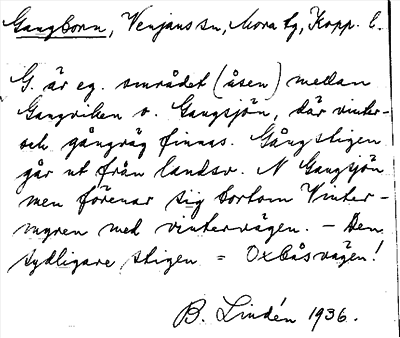 Gangborn, Venjans sn, Mora tg, Kopp. l.
G. är eg. området (åsen) mellan
Gangviken o. Gangsjön, där vinter-
och gångväg finnas. Gångstigen
går ut från landsv. N Gangsjön
men förenar sig bortom Vinter-
myren med vintervägen. - Den
sydligare stigen = Oxbåsvägen!
B. Lindén 1936.